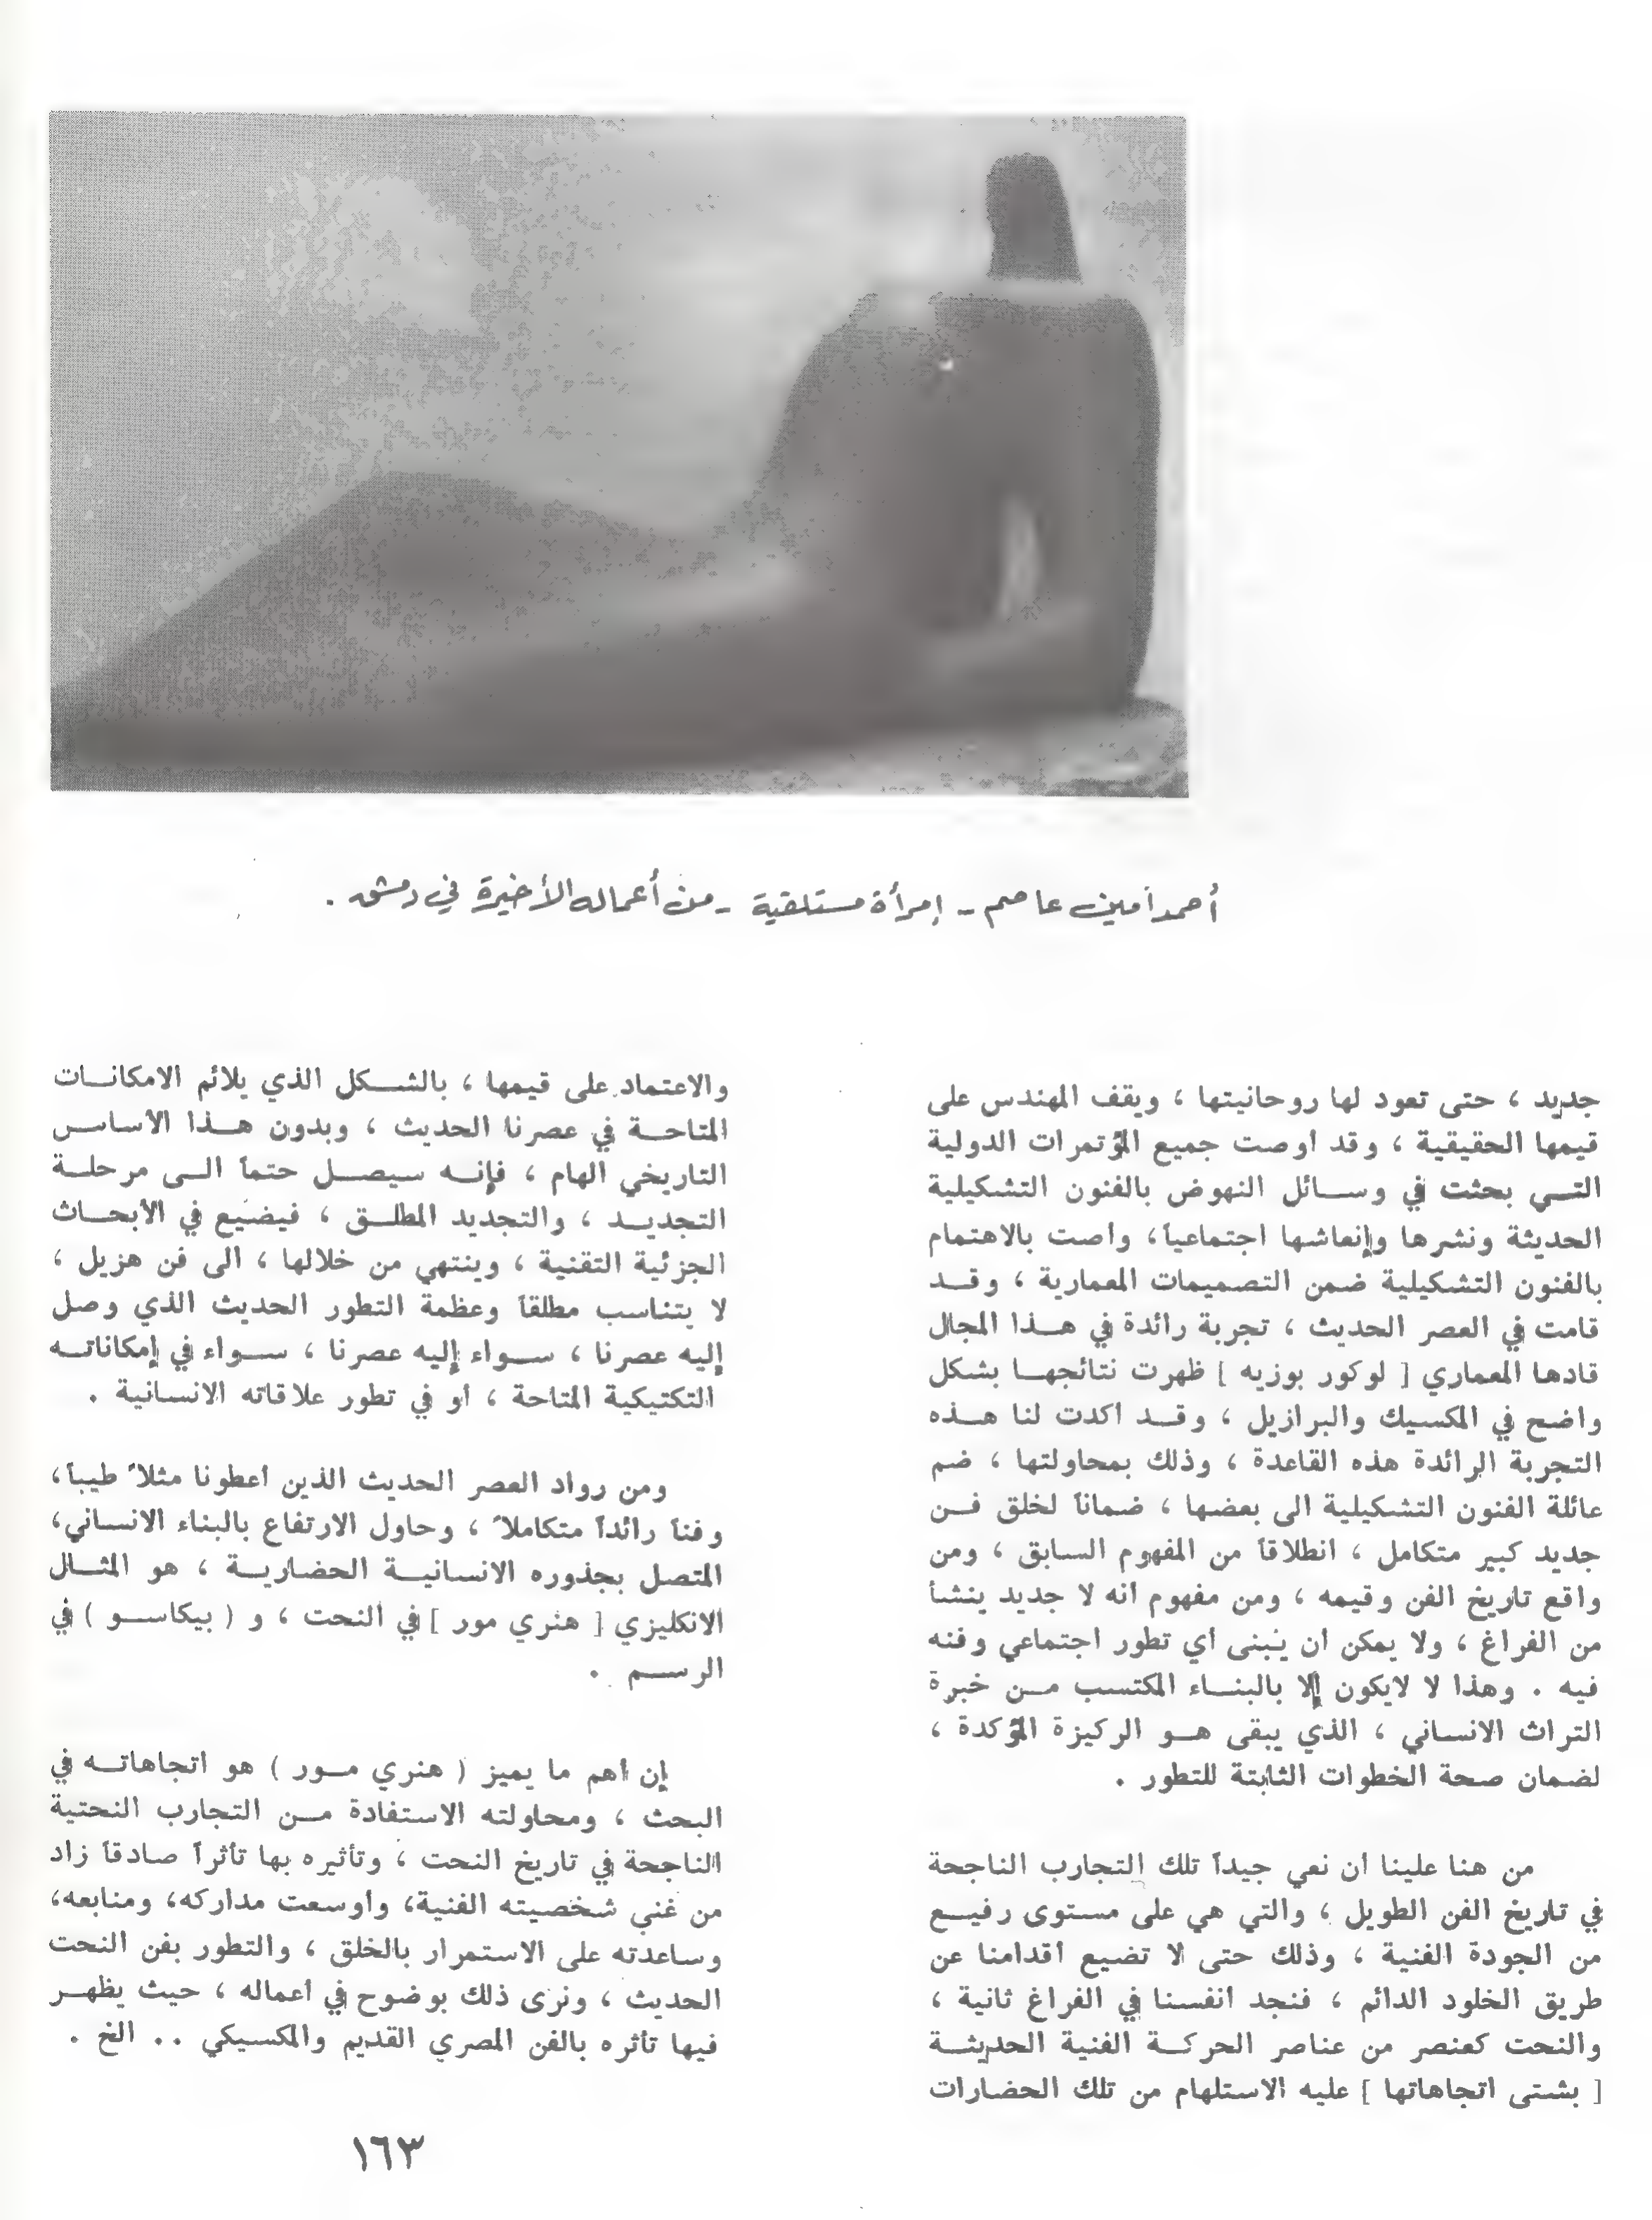 أحمد أمين عاصم - إمرأة مستلقية - من أعماله الأخيرة في دمشق .
جديد ، حتى تعود لها روحانيتها ، ويقف المهندس على
قيمها الحقيقية ، وقد أوصت جميع المؤتمرات الدولية
التي بحثت في وسائل النهوض بالفنون التشكيلية
الحديثة ونشرها وإنعاشها اجتماعياً ، وأصت بالاهتمام
بالفنون التشكيلية ضمن التصميمات المعمارية ، وقد
قامت في العصر الحديث ، تجربة رائدة في هذا المجال
قادها المعماري [ لوكور بوزيه ] ظهرت نتائجها بشكل
واضح في المكسيك والبرازيل ، وقد أكدت لنا هذه
التجربة الرائدة هذه القاعدة ، وذلك بمحاولتها ، ضم
عائلة الفنون التشكيلية الى بعضها ، ضماناً لخلق فن
جديد كبير متكامل ، انطلاقاً من المفهوم السابق ، ومن
واقع تاريخ الفن وقيمه ، ومن مفهوم أنه لا جديد ينشأ
من الفراغ ، ولا يمكن أن يُبنى أي تطور اجتماعي وفنه
فيه . وهذا لا لايكون إلا بالبناء المكتسب من خبرة
التراث الانساني ، الذي يبقى هو الركيزة المؤكدة ،
لضمان صحة الخطوات الثابتة للتطور .
من هنا علينا أن نعي جيداً تلك التجارب الناجحة
في تاريخ الفن الطويل ، والتي هي على مستوى رفيع
من الجودة الفنية ، وذلك حتى لا تضيع أقدامنا عن
طريق الخلود الدائم ، فنجد أنفسنا في الفراغ ثانية ،
والنحت كعنصر من عناصر الحركة الفنية الحديثة
[ بشتى اتجاهاتها ] عليه الاستلهام من تلك الحضارات
والاعتماد على قيمها ، بالشكل الذي يلائم الامكانات
المتاحة في عصرنا الحديث ، وبدون هذا الأساس
التاريخي الهام ، فإنه سيصل حتماً الى مرحلة
التجديد ، والتجديد المطلق ، فيضيع في الأبحاث
الجزئية التقنية ، وينتهي من خلالها ، الى فن هزيل ،
لا يتناسب مطلقاً وعظمة التطور الحديث الذي وصل
إليه عصرنا ، سواء إليه عصرنا ، سواء في إمكاناته
التكتيكية المتاحة ، أو في تطور علاقاته الانسانية .
ومن رواد العصر الحديث الذين أعطونا مثلاً طيباً ،
وفناً رائداً متكاملاً ، وحاول الارتفاع بالبناء الانساني،
المتصل بجذوره الانسانية الحضارية ، هو المثال
الانكليزي [ هنري مور ] في النحت ، و ( بيكاسو ) في
الرسم .
إن أهم ما يميز ( هنري مور ) هو اتجاهاته في
البحث ، ومحاولته الاستفادة من التجارب النحتية
الناجحة في تاريخ النحت ، وتأثيره بها تأثراً صادقاً زاد
من غني شخصيته الفنية، وأوسعت مداركه، ومنابعه،
وساعدته على الاستمرار بالخلق ، والتطور بفن النحت
الحديث ، ونرى ذلك بوضوح في أعماله ، حيث يظهر
فيها تأثره بالفن المصري القديم والمكسيكي .. الخ .
١٦٣